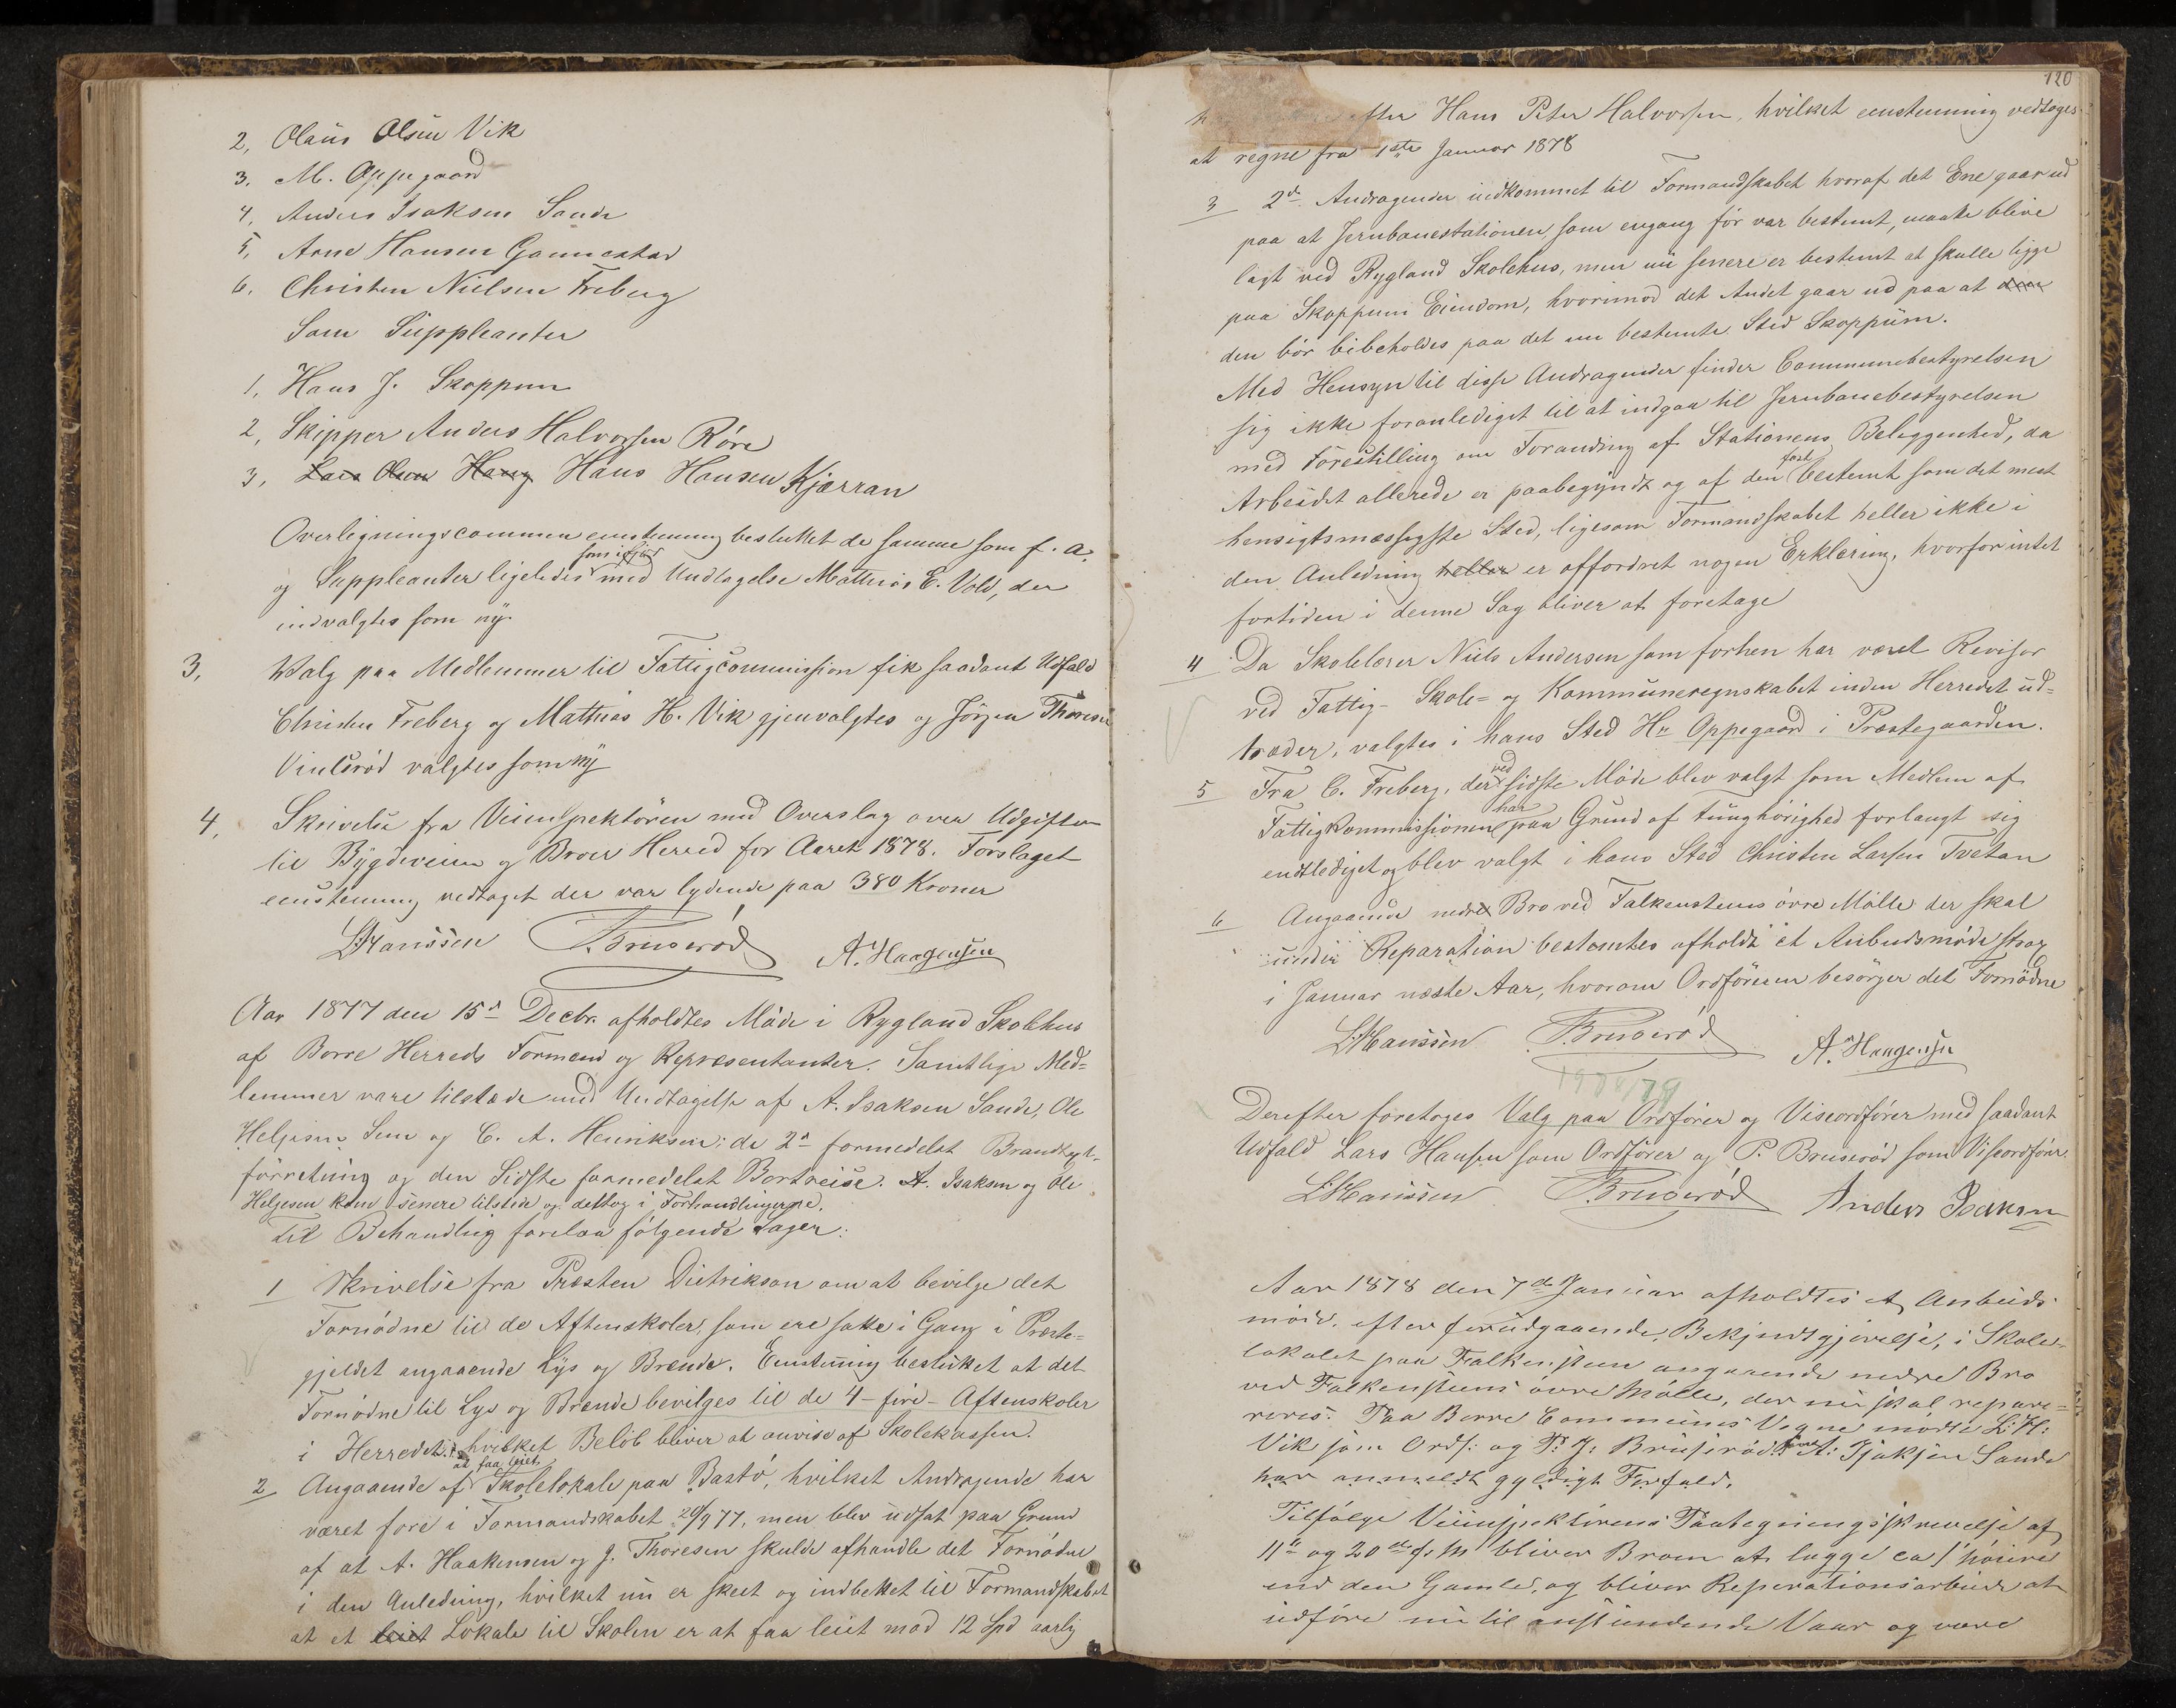 2, Olaus Olsen Vik
3. M. Oppegaard
4. Anders Isaksen Sande
5, Arne Hansen Gannestad
6. Christen Nielsen Freberg
Som Suppleanter
1, Hans J. Skoppum
2, Skipper Anders Halvorsen Röre
3, Lars Olsen Haug Hans Hansen Kjærran
Overligningscommen enstemmig besluttet de samme som f. A.
og Suppleanter ligeledes som ifjor med Undtagelse Mathias E. Vold, der
indvalgtes som ny.
3, Valg paa Medlemmer til Fattigcommission fik saadant Udfald
Christen Freberg og Mathias H. Vik gjenvalgtes og Jörgen Thoresen
Viulsröd valgtes som ny
4, Skrivelse fra Veiinspektören med Overslag over Udgifter
til Bygdeveien og Broer Herred for Aaret 1878. Forslaget
enstemmig vedtaget der var lydende paa 380 Kroner
L. Hanssen P. Bruseröd A. Haagensen
Aar 1877 den 15de Decbr. afholdtes Möde i Rygland Skolehus
af Borre Herreds Formænd og Repræsentanter. Samtlige Med=
lemmer vare tilstæde med Undtagelse af A. Isaksen Sande, Ole
Helgesen Sem og C. A. Henriksen; de 2de formedelst Brandtagst-
förretning og den Sidste formedelst Bortreise. A. Isaksen og Ole
Helgesen kom senere tilstede og deltog i Forhandlingerne.
Til Behandling forelaa fölgende Sager:
1 Skrivelse fra Præsten Dietrikson om at bevilge det
Fornödne til de Aftenskoler, som ere satte i Gang i Præste=
gjeldet angaaende Lys og Brænde. Enstemmig besluttet at det
Fornödne til Lys og Brænde bevilges til de 4 - fire - Aftenskoler
i Herredet, hvilket Belöb bliver at anvise af Skolekassen.
2 Angaaende at faa leiet af Skolelokale paa Bastö, hvilket Andragende har
været fore i Formandskabet 29/9 77, men blev udsat paa Grund
af at A. Haakensen og J. Thoresen skulde afhandle det Fornödne
i den Anledning, hvilket nu er skeet og indbettet til Formandskabet
at et leiet Lokale til Skolen er at faa leiet mod 12 Spd aarlig
120
efter Hans Peter Halvorsen, hvilket enstemmig vedtoges
at regne fra 1ste Januar 1878
3 2de Andragender indkommet til Formandskabet hvoraf det Ene gaar ud
paa at Jernbanestationen, som engang för var bestemt, maatte blive
lagt ved Rygland Skolehus, men nu senere er bestemt at skulle ligge
paa Skoppum Eiendom, hvorimod det Andet gaar ud paa at den
den bör bibeholdes paa det nu bestemte Sted Skoppum.
Med Hensyn til disse Andragender finder Communebestyrelsen
sig ikke foranlediget til at indgaa til Jernbanebestyrelsen
med Forestilling om Forandring af Stationens Beliggenhed, da
Arbeidet allerede er paabegyndt og af den fast bestemt som det mest
hensigtsmæssigste Sted, ligesom Formandskabet heller ikke i
den Anledning heller er affordret nogen Erklæring, hvorfor intet
fortiden i denne Sag bliver at foretage
4 Da Skolelærer Niels Andersen som forhen har været Revisor
ved Fattig- Skole= og Kommuneregnskabet inden Herredet ud=
træder, valgtes i hans Sted Hr Oppegaard i Præstegaarden.
5 Fra C. Freberg, der ved sidste Möde blev valgt som Medlem af
Fattigkommissionen har paa Grund af tunghörighed forlangt sig
entlediget og blev valgt i hans Sted Christen Larsen Tvetan
6 Angaaende nedre Bro ved Falkenstens övre Mölle der skal
under Reparation bestemtes afholdt et Anbudsmöde strax
i Januar næste Aar, hvorom Ordföreren besörger det Fornödne
L. Hanssen P. Bruseröd A. Haagensen
1878/79
Derefter foretoges Valg paa Ordförer og Viseordförer med saadant
Udfald Lars Hansen som Ordförer og P. Bruseröd som Viseordförer.
L. Hanssen P. Bruseröd Anders Isaksen
Aar 1878 den 7de Januar afholdtes et Anbuds
möde, efter forudgaaende Bekjendtgjörelse, i Skole-
lokalet paa Falkensten angaaende nedre Bro
ved Falkenstens övre Mölle, der nu skal repare=
reres. Paa Borre Communes Vegne mödte L. H.
Vik som Ordf: og P. J: Bruseröd. A: Isaksen Sande
har anmeldt gyldigt Forfald.
Tilfölge Veiinspektörens Paategningsskrivelse af
11te og 20de f. M. bliver Broen at lægge ca 1' höiere
end den Gamle, og bliver Reparationsarbeide at
udföre nu til anstundende Vaar og være